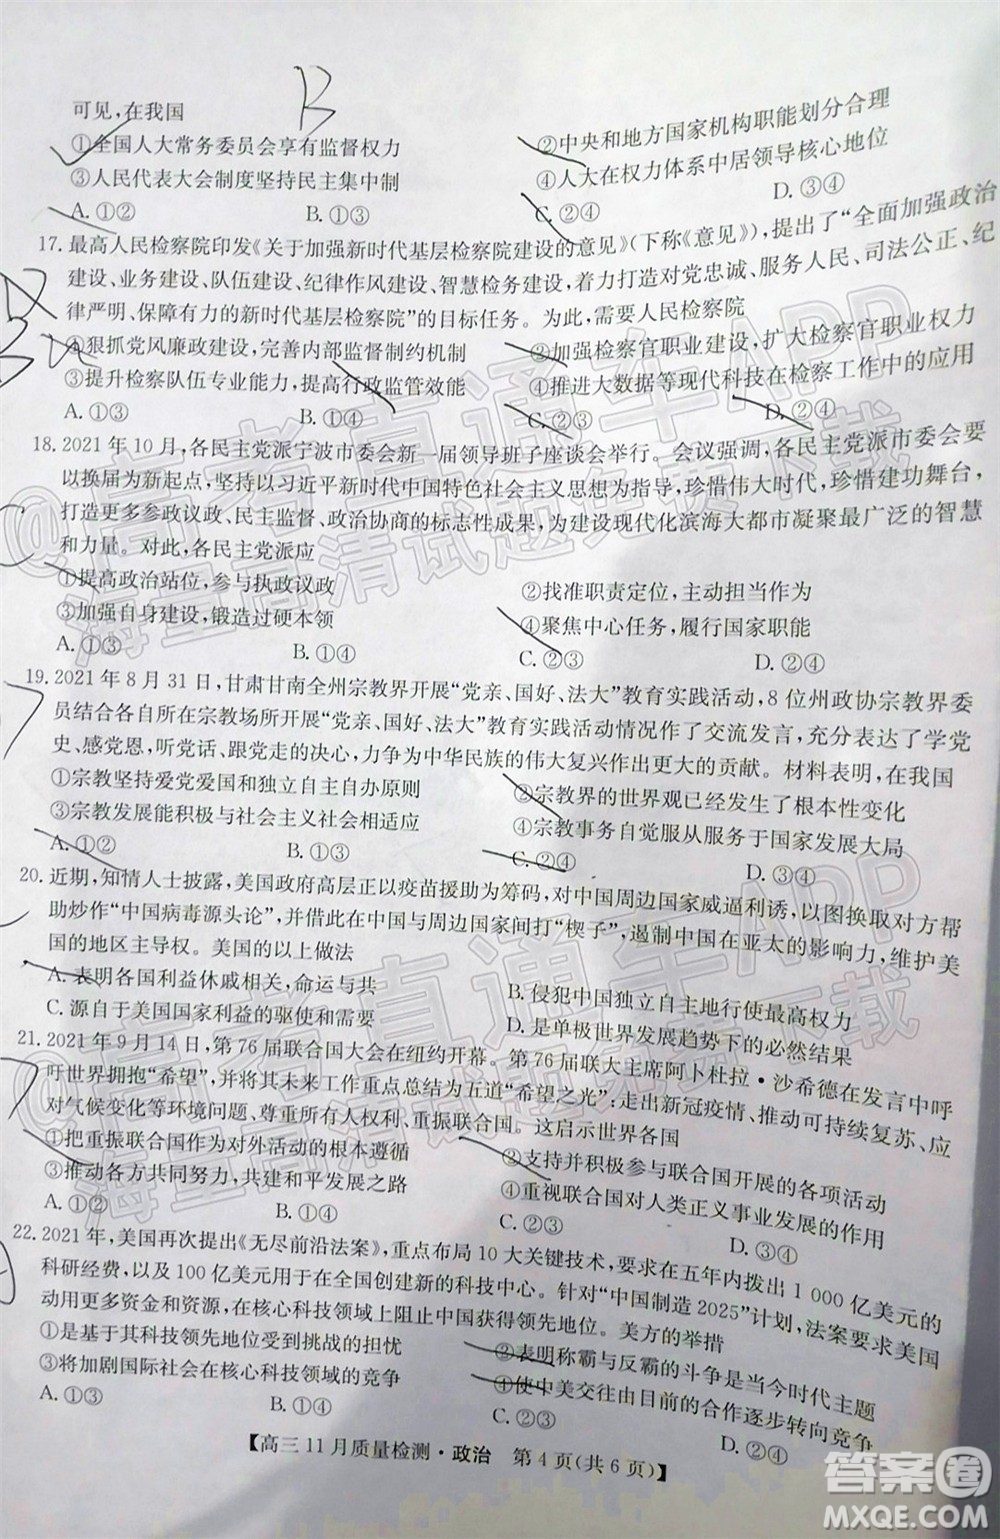 可见,在我国
B
①全国人大常务委员会享有监督权力
②中央和地方国家机构职能划分合理
③人民代表大会制度坚持民主集中制
④人大在权力体系中居领导核心地位
A. ①② B. ①③ C. ②④ D. ③④
17. 最高人民检察院印发《关于加强新时代基层检察院建设的意见》(下称《意见》),提出了“全面加强政治
建设、业务建设、队伍建设、纪律作风建设、智慧检务建设,着力打造对党忠诚、服务人民、司法公正、纪
律严明、保障有力的新时代基层检察院”的目标任务。为此,需要人民检察院
①狠抓党风廉政建设,完善内部监督制约机制
②加强检察官职业建设,扩大检察官职业权力
③提升检察队伍专业能力,提高行政监管效能
④推进大数据等现代科技在检察工作中的应用
A. ①③ B. ①④ C. ②③ D. ②④
18. 2021年10月,各民主党派宁波市委会新一届领导班子座谈会举行。会议强调,各民主党派市委会要
以换届为新起点,坚持以习近平新时代中国特色社会主义思想为指导,珍惜伟大时代,珍惜建功舞台,
打造更多参政议政、民主监督、政治协商的标志性成果,为建设现代化滨海大都市凝聚最广泛的智慧
和力量。对此,各民主党派应
①提高政治站位,参与执政议政
②找准职责定位,主动担当作为
③加强自身建设,锻造过硬本领
④聚焦中心任务,履行国家职能
A. ①③ B. ①④ C. ②③ D. ②④
19. 2021年8月31日,甘肃甘南全州宗教界开展“党亲、国好、法大”教育实践活动,8位州政协宗教界委
员结合各自所在宗教场所开展“党亲、国好、法大”教育实践活动情况作了交流发言,充分表达了学党
史、感党恩,听党话、跟党走的决心,力争为中华民族的伟大复兴作出更大的贡献。材料表明,在我国
①宗教坚持爱党爱国和独立自主自办原则
②宗教界的世界观已经发生了根本性变化
③宗教发展能积极与社会主义社会相适应
④宗教事务自觉服从服务于国家发展大局
A. ①② B. ①③ C. ②④ D. ③④
20. 近期,知情人士披露,美国政府高层正以疫苗援助为筹码,对中国周边国家威逼利诱,以图换取对方帮
助炒作“中国病毒源头论”,并借此在中国与周边国家间打“楔子”,遏制中国在亚太的影响力,维护美
国的地区主导权。美国的以上做法
A. 表明各国利益休戚相关、相互影响
B. 侵犯中国独立自主地行使最高权
C. 源自于美国国家利益的驱使和需要
D. 是单极世界发展趋势下的必然结果
21. 2021年9月14日,第76届联合国大会在纽约开幕。第76届联大主席阿卜杜拉·沙希德在发言中呼
吁世界拥抱“希望”,并将其未来工作重点总结为五道“希望之光”:走出新冠疫情、推动可持续复苏、应
对气候变化等环境问题、尊重所有人权利、重振联合国。这启示世界各国
①把重振联合国作为对外活动的根本遵循
②支持并积极参与联合国开展的各项活动
③推动各方共同努力,共建和平发展之路
④重视联合国对人类正义事业发展的作用
A. ①② B. ①④ C. ②③ D. ③④
22. 2021年,美国再次提出《无尽前沿法案》,重点布局10大关键技术,要求在五年内新拨出1 000亿美元的
科研经费,以及100亿美元用于在全国创建新的科技中心。针对“中国制造2025”计划,法案要求美国
动用更多资金和资源,在核心科技领域上阻止中国获得领先地位。美方的举措
①是基于其科技领先地位受到挑战的担忧
②表明称霸与反霸的斗争是当今时代主题
③将加剧国际社会在核心科技领域的竞争
④使中美交往由目前的合作逐步转向竞争
A. ①③ B. ①④ C. ②③ D. ②④
【高三11月质量检测·政治 第4页(共6页)】
答案圈
MXQE.COM